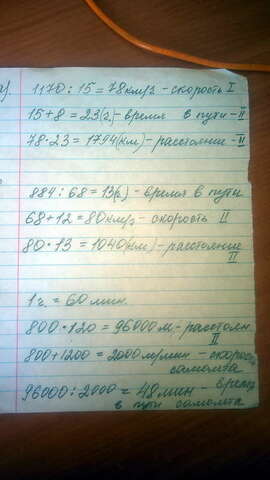 а). 1170 : 15 = 78 км/г - скорость I
15 + 8 = 23(г.) - время в пути - II
78 · 23 = 1794(км) - расстояние - II
884 : 68 = 13(г) - время в пути
68 + 12 = 80км/г - скорость II
80 · 13 = 1040(км) - расстояние
II
1 г. = 60 мин.
800 · 120 = 96000 м - расстоян.
II
800 + 1200 = 2000 м/мин - скорость
самолёта
96000 : 2000 = 48 мин - время
в пути самолёта